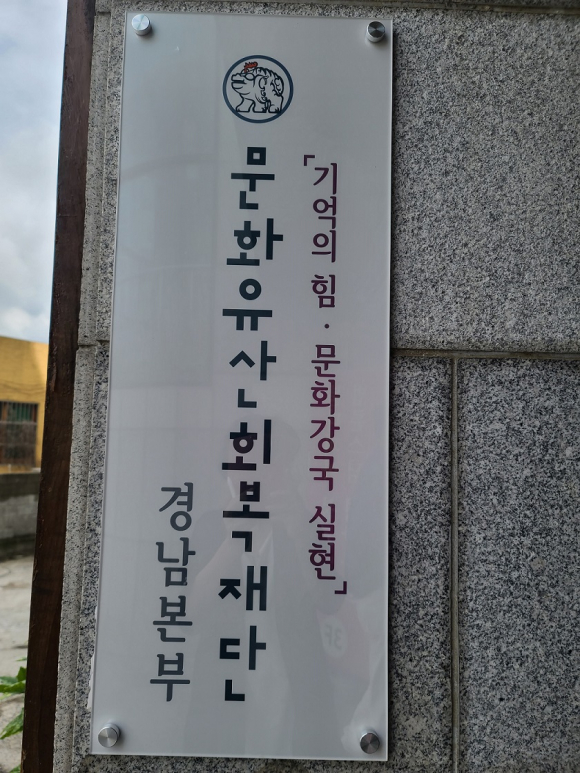 「기억의 힘 · 문화강국 실현」
문화유산회복재단
경남본부